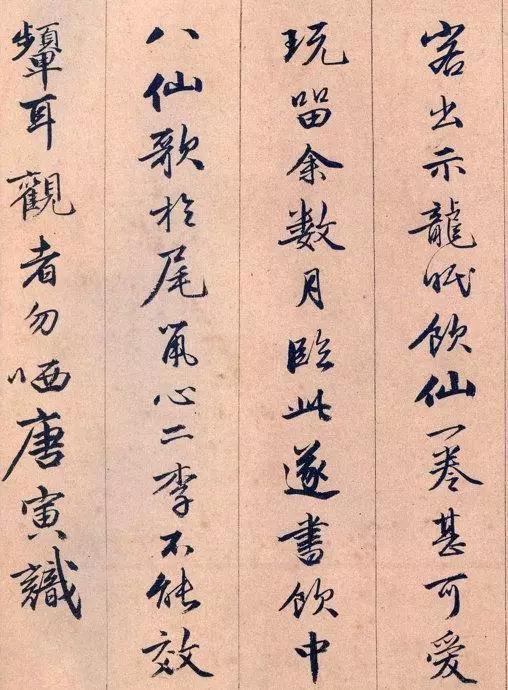 岩出示龍眠飲仙一卷甚可愛
玩留余数月臨此遂書飲中
八仙歌於尾鼠心二李不能效
顰耳觀者勿哂唐寅識